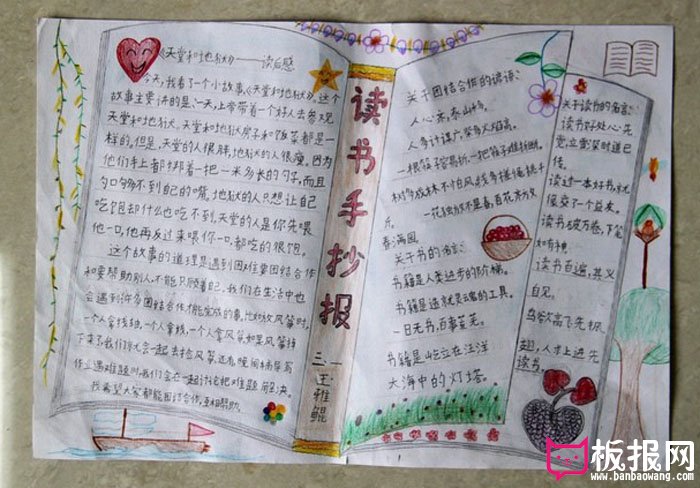 《天堂和地狱》——读后感
今天，我看了一个小故事《天堂和地狱》，这个
故事主要讲的是:一天，上帝带着一个好人去参观
天堂和地狱。天堂和地狱房子和饭菜都是一
样的。但是，天堂的人很胖，地狱的人很瘦。因为
他们手上都绑着一把一米多长的勺子，而且
勺口够不到自己的嘴。地狱的人只想让自己
吃饱却什么也吃不到，天堂的人是你先喂
他一口，他再反过来喂你一口，都吃的很饱。
这个故事的道理是遇到困难要团结合作
和要帮助别人，不能只顾着自己。我们在生活中也
会遇到许多团结合作才能完成的事，比如放风筝时，
一个人拿线轴，一个人拿线，一个人拿风筝，如果风筝掉
下来了，我们就会一起去捡风筝，还有，晚间辅导写
作业遇难题时，我们会在一起讨论把难题
我希望大家都能团结合作，互相帮助。
读书手抄报
三、一
王雅鲲
关于团结合作的谚语：
人心齐，泰山移。
人多计谋广，柴多火焰高。
一根筷子容易折，一把筷子难折断。
树多成林不怕风，线多搓绳挑千
斤
一花独放不是春，百花齐放
春满园。
关于书的名言：
书籍是人类进步的阶梯。
书籍是造就灵魂的工具。
一日无书，百事荒芜。
书籍是屹立在汪洋
大海中的灯塔。
关于读书的名言：
读书好处心先
觉，立雪深时道已
传。
读过一本好书，就
像交了一个益友。
读书破万卷，下笔
如有神。
读书百遍，其义
自见。
鸟欲高飞先振
翅，人求上进先
读书。
板报网
www.banbaowang.com